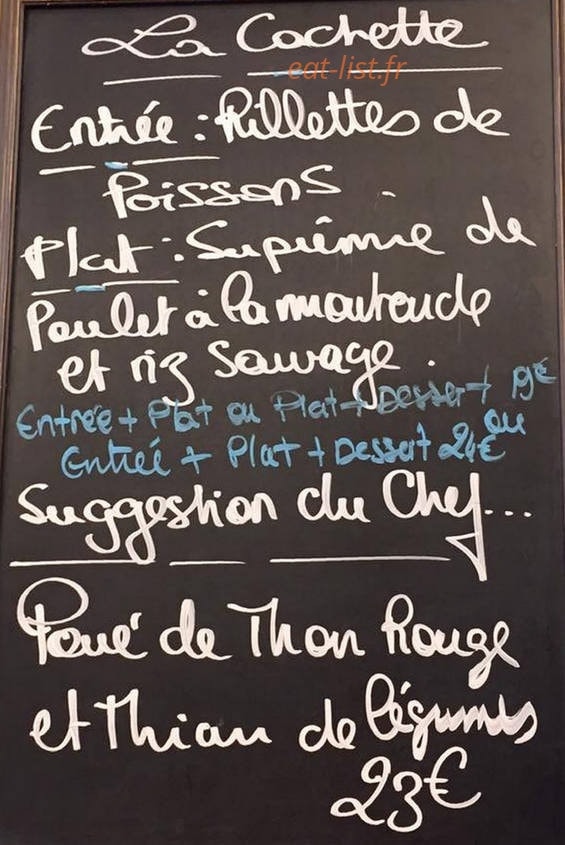 La Cachette
eat-list.fr
Entrée : Rillettes de
Poissons
Plat : Suprême de
Poulet à la moutarde
et riz Sauvage.
Entrée + Plat ou Plat + Dessert 19€
ou
Entrée + Plat + Dessert 24€
Suggestion du Chef...
Pavé de Thon Rouge
et Thian de légumes
23€